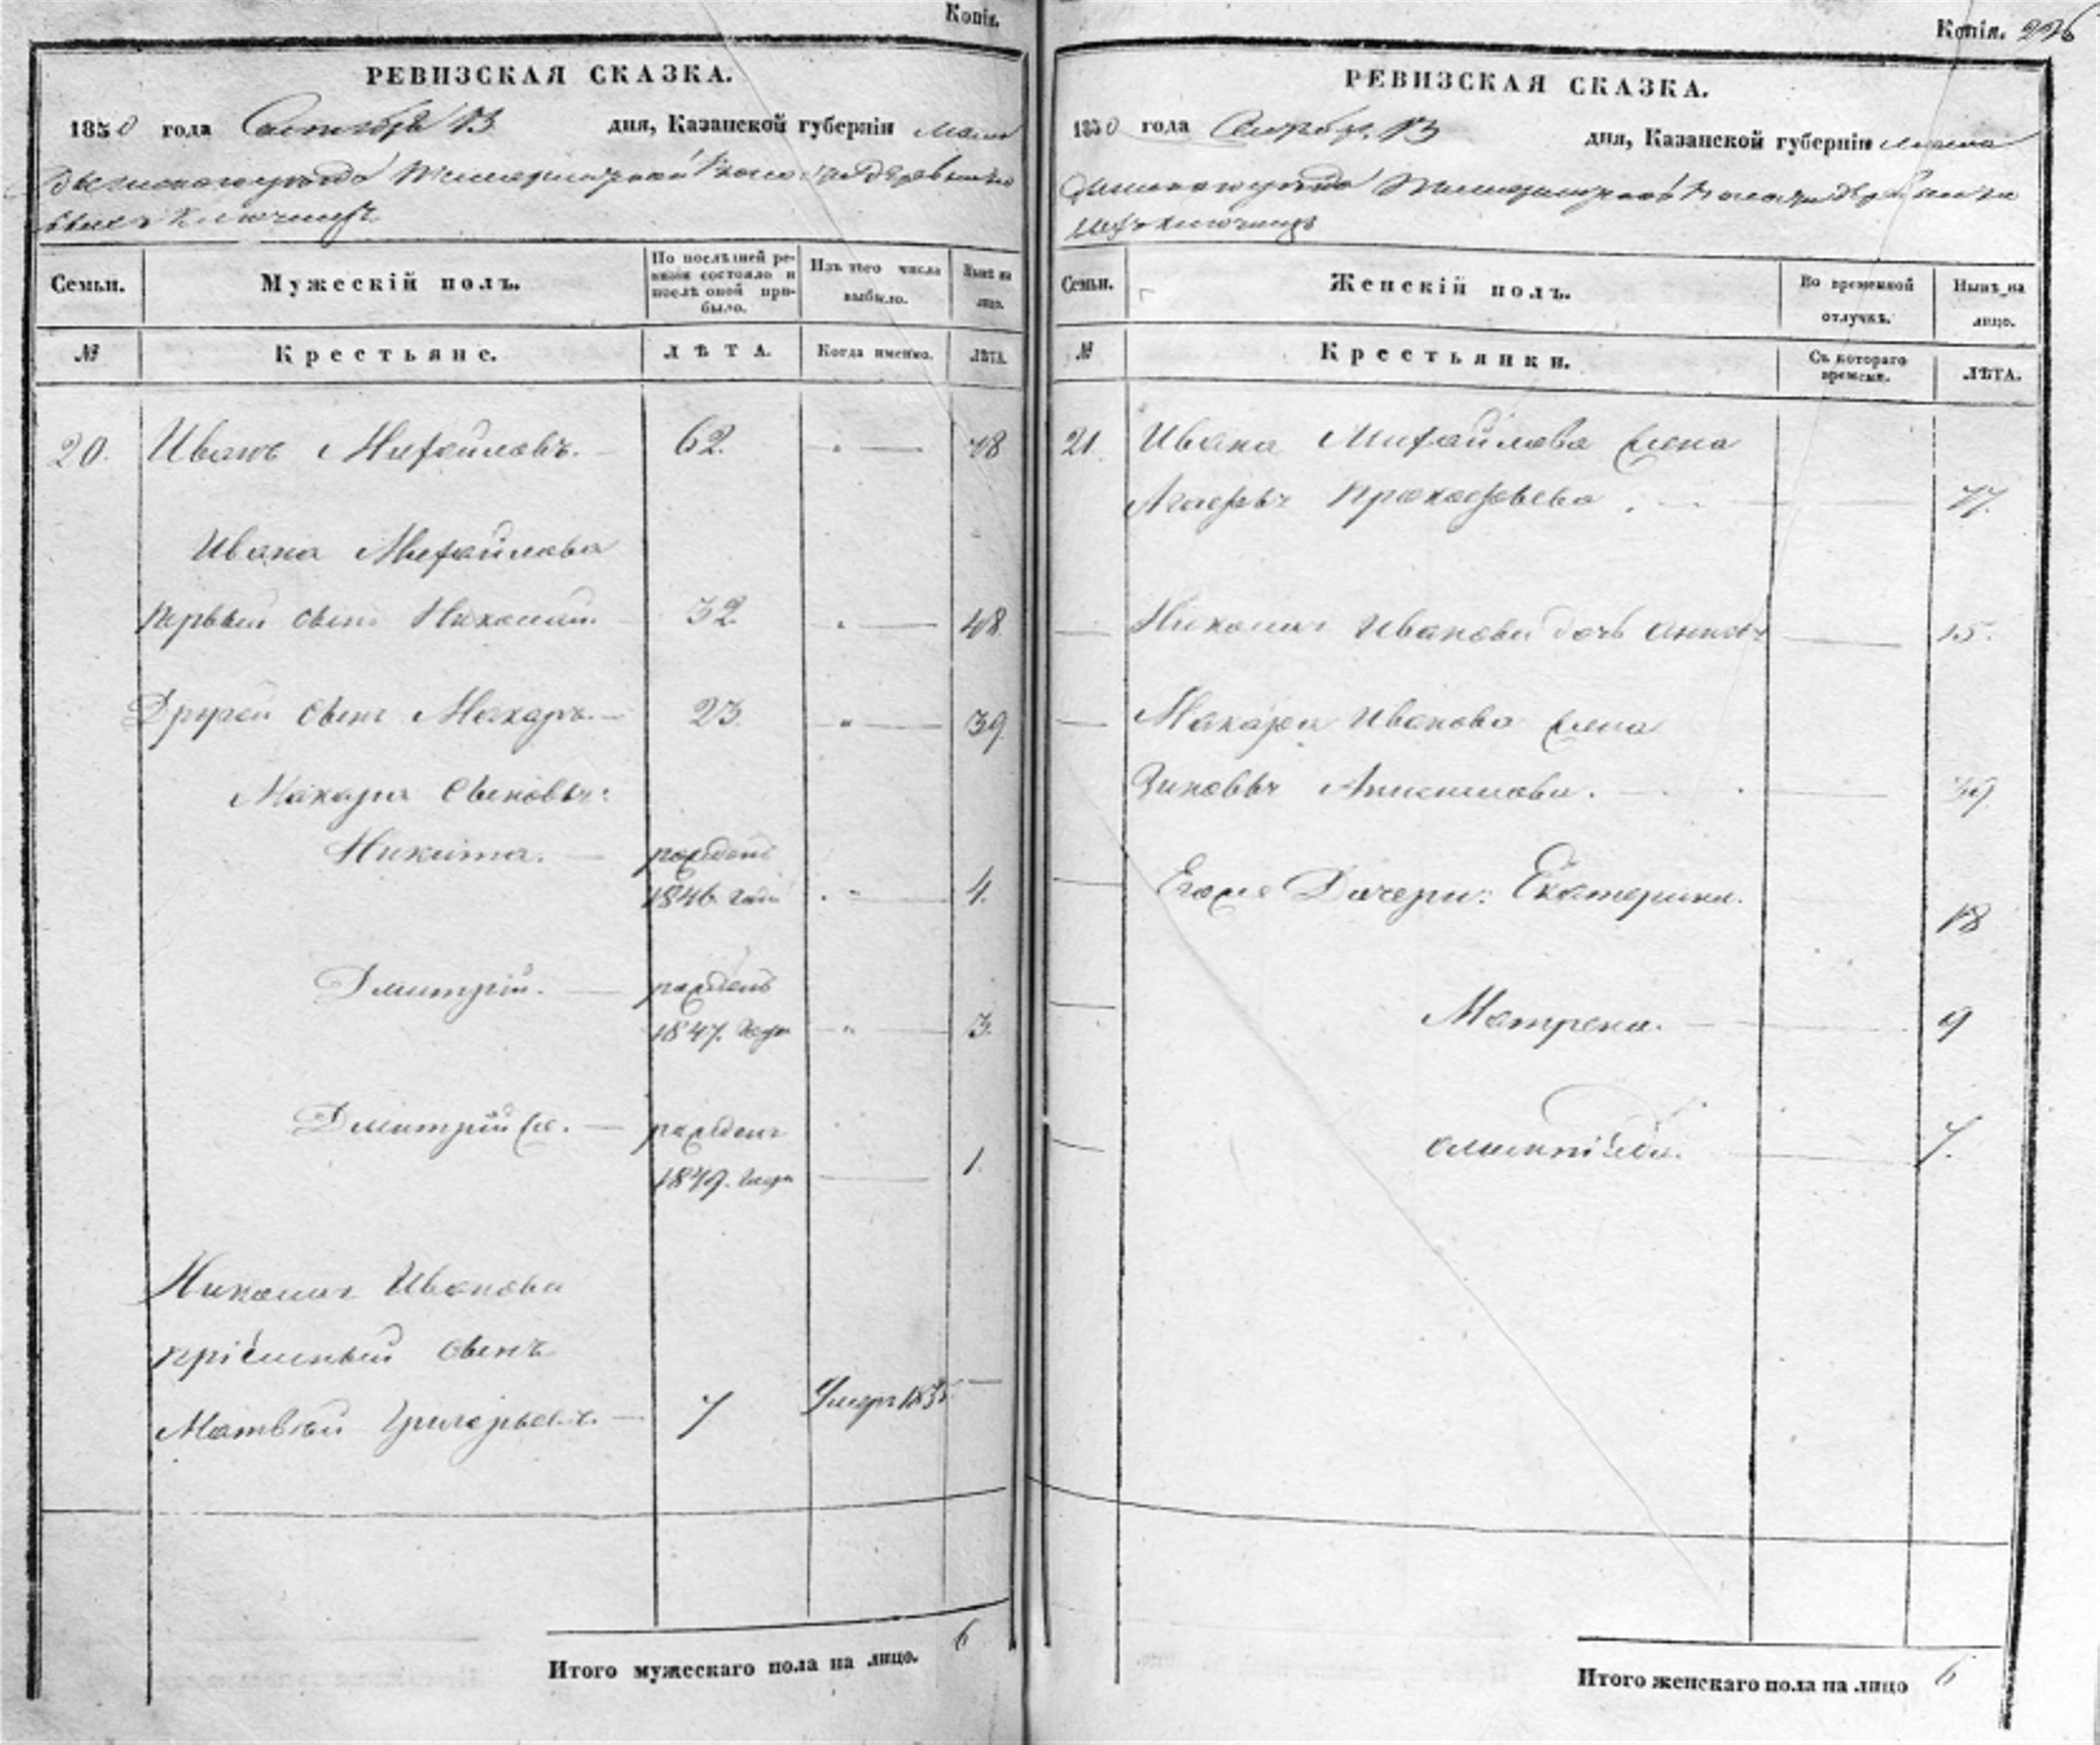 Копія.
РЕВИЗСКАЯ СКАЗКА.
1850 года Сентября 13 дня, Казанской губерніи Мама
дышскаго уезда
Ключищъ
Семьи. Мужескій полъ. По послѣдней ре-визіи состояло и послѣ оной при-было. Изъ того числа выбыло. Нынѣ на лицо.
№ Крестьяне. ЛѢТА. Когда именно. ЛѢТА.
20. Иванъ Михайловъ. 62. 78
Ивана Михайлова
первый сынъ Николай. 32. 48
Другой сынъ Макаръ. 23. 39
Макара сыновья:
Никита. рожденъ
1846 года 4.
Дмитрій. рожденъ
1847. года 3.
Дмитрій рожденъ
1849. года 1.
Николая Иванова
пріемный сынъ
Матвей Григорьевъ. 7 Умеръ 1835
Итого мужескаго пола на лицо. 6
Копія. 226
РЕВИЗСКАЯ СКАЗКА.
1850 года Сентября 13 дня, Казанской губерніи Мама
дышскаго уезда
Ключищъ
Семьи. Женскій полъ. Во временной отлучкѣ. Нынѣ на лицо.
№ Крестьянки. Съ котораго времени. ЛѢТА.
21. Ивана Михайлова жена
Агафья Прокофьева. 77.
Николая Иванова дочь Анна 15.
Макара Иванова жена
Зиновья Анисимова. 39
Его же Дочери: Екатерина.
18
Матрена. 9
7.
Итого женскаго пола на лицо 6